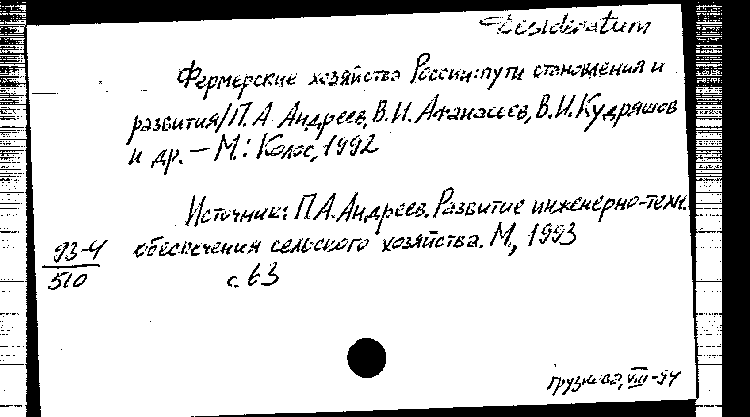 Desideratum
Фермерские хозяйства России: пути становления и
развития/П.А. Андреев, В.И. Афанасьев, В.И. Кудряшов
и др. — М.: Колос, 1992
Источник: П.А. Андреев. Развитие инженерно-техн.
93-4
510
обеспечения сельского хозяйства. М., 1993
с. 63
VIII-94